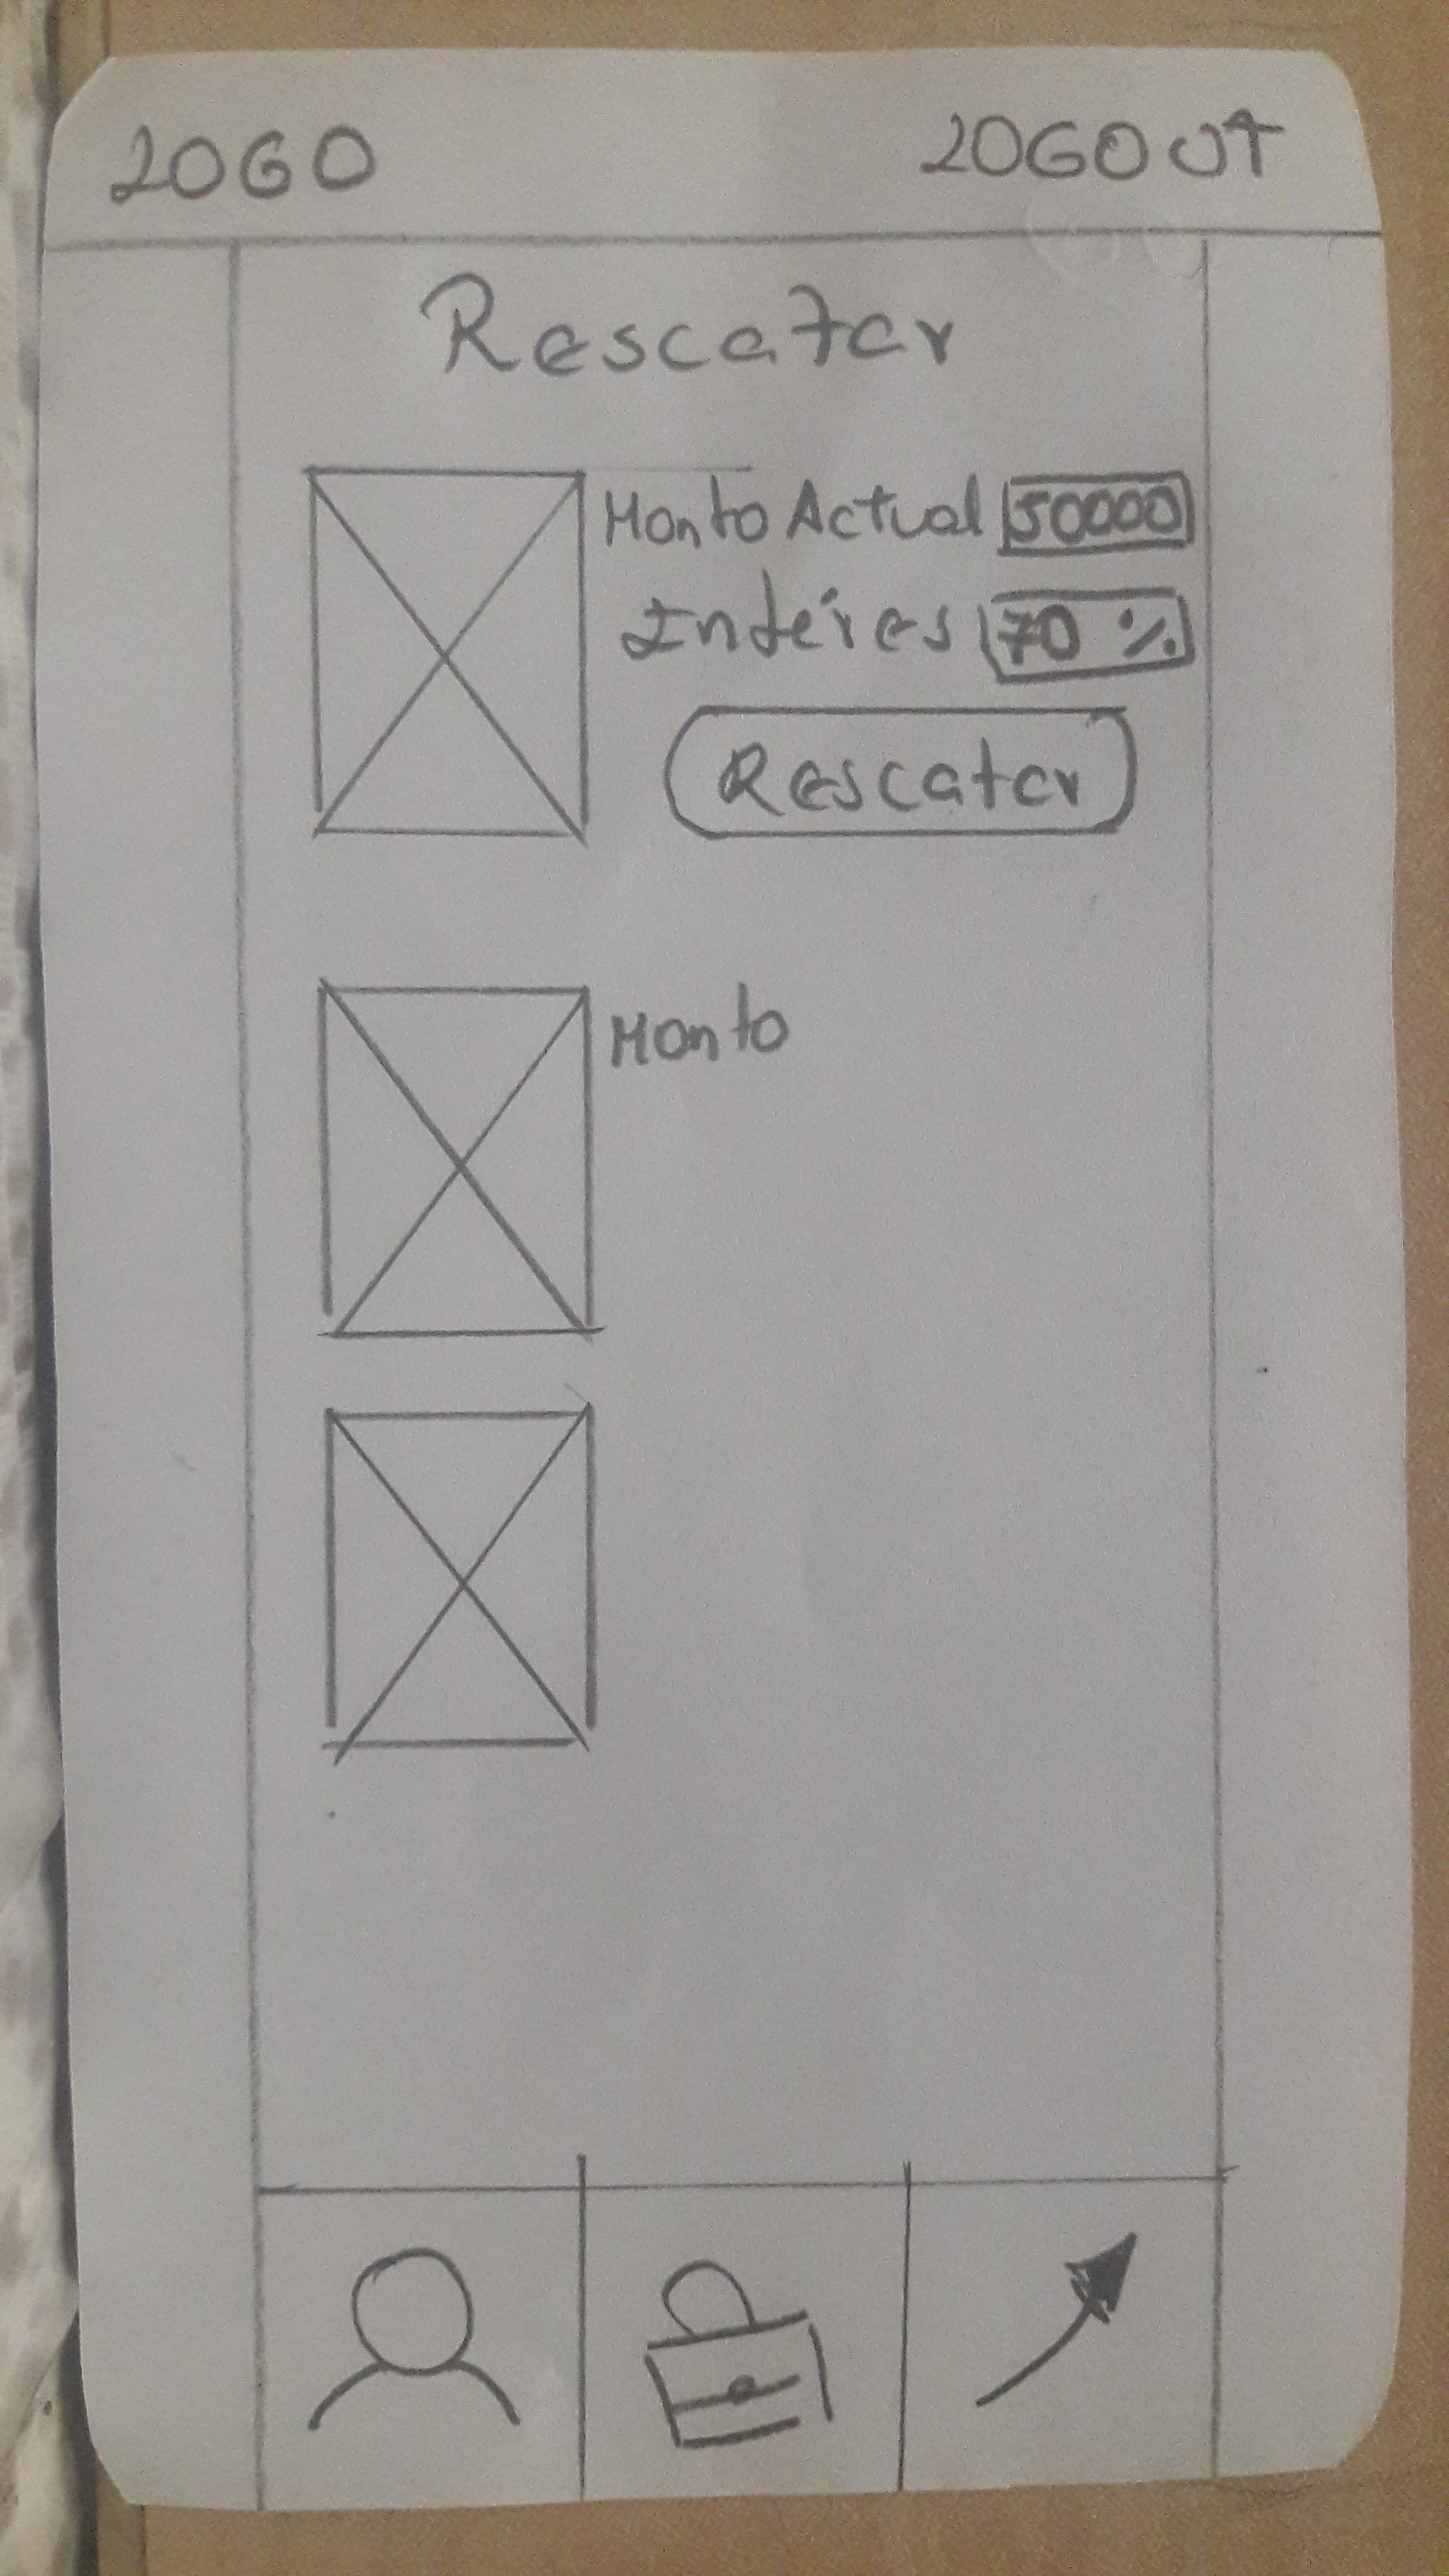 LOGO LOGOUT
Rescatar
Monto Actual 50000
Interes 70 %
Rescatar
Monto